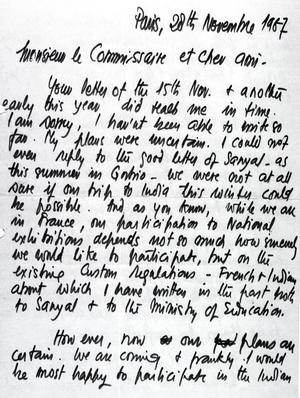 Paris, 28th November 1967
Monsieur le Commissaire et Cher ami -
Your letter of the 15th Nov. & another
early this year did reach me in time.
I am sorry, I hav'nt been able to write so
far. My plans were uncertain. I could not
even reply to the good letter of Sanyal - as
this summer in Gorbio - we were not at all
sure if our trip to India this winter could
be possible. And as you know, while we are
in France, our participation to National
exhibitions depends not so much how sincerely
we would like to participate, but on the
existing Custom Regulations - French & Indian
about which I have written in the past both
to Sanyal & to the Ministry of Education.
How ever, now our plans are
certain. We are coming & frankly I would
be most happy to participate in the Indian